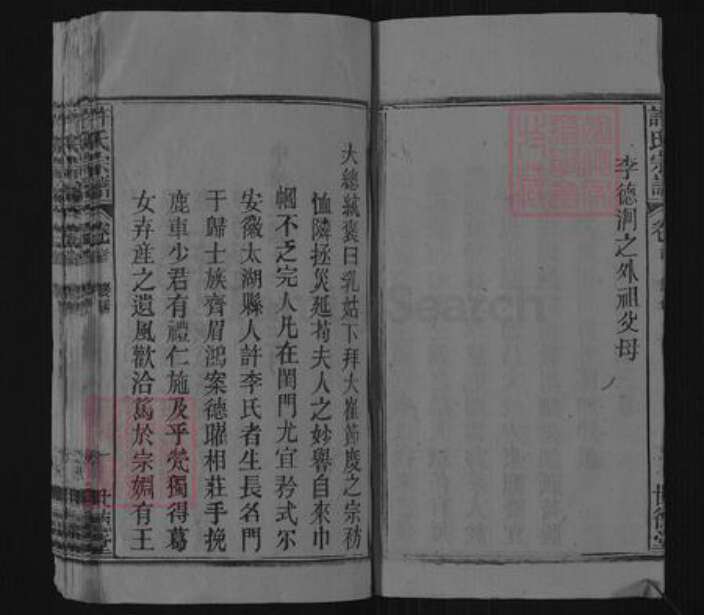 許氏宗譜
李德潤之外祖父母
世德堂
大總統褒曰乳姑下拜大崔節慶之宗務
恤隣拯災延荀夫人之妙譽自來巾
幗不乏完人凡在閨門尤宜矜式尔
安徽太湖縣人許李氏者生長名門
于歸士族齊眉鴻案德曜相莊手挽
鹿車少君有禮仁施及乎煢獨得葛
女弃產之遺風歡洽篤於宗婣有王
許氏宗譜
世德堂
Search